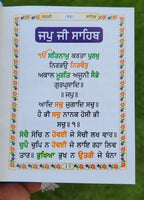 ਜਪੁ ਜੀ ਸਾਹਿਬ
ੴ ਸਤਿਨਾਮੁ ਕਰਤਾ ਪੁਰਖੁ
ਨਿਰਭਉ ਨਿਰਵੈਰੁ
ਅਕਾਲ ਮੂਰਤਿ ਅਜੂਨੀ ਸੈਭੰ
ਗੁਰਪ੍ਰਸਾਦਿ॥
॥ਜਪੁ॥
ਆਦਿ ਸਚੁ ਜੁਗਾਦਿ ਸਚੁ॥
ਹੈ ਭੀ ਸਚੁ ਨਾਨਕ ਹੋਸੀ ਭੀ
ਸਚੁ॥੧॥
ਸੋਚੈ ਸੋਚਿ ਨ ਹੋਵਈ ਜੇ ਸੋਚੀ ਲਖ ਵਾਰ॥
ਚੁਪੈ ਚੁਪਿ ਨ ਹੋਵਈ ਜੇ ਲਾਇ ਰਹਾ ਲਿਵ
ਤਾਰ॥ ਭੁਖਿਆ ਭੁਖ ਨ ਉਤਰੀ ਜੇ ਬੰਨਾ